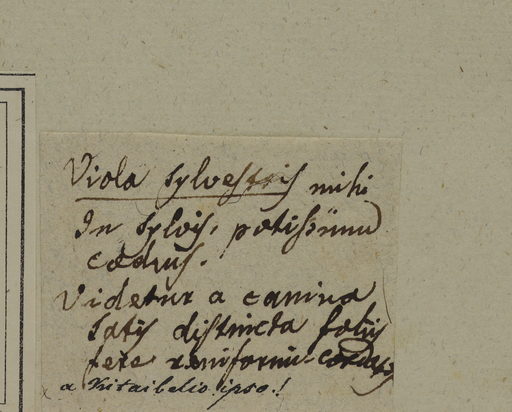 Viola sylvestris mihi
In sylvis, potissimū
cæduis.
Videtur a canina
satis distincta foliis
fere reniformi-cordatis
a Kitaibelio ipso!